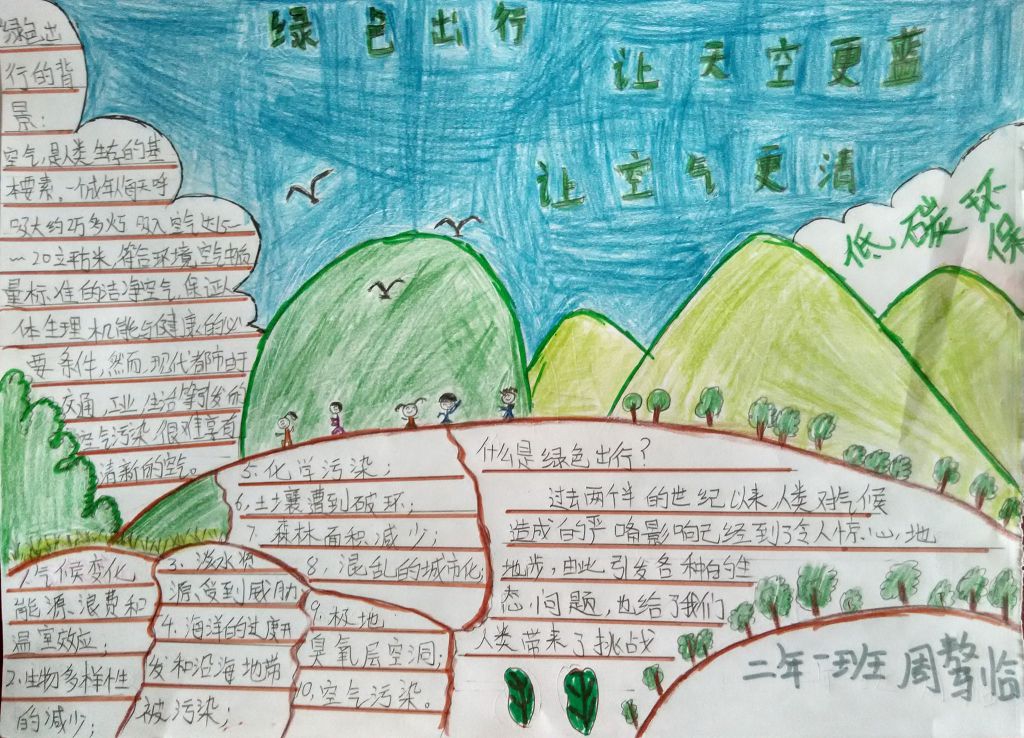 绿色出行
让天空更蓝
让空气更清
低碳环
保
绿色出
行的背
景:
空气,是人类生存的基
本要素,一个成年人每天呼
吸大约2万多次,吸入空气达15
~20立方米,符合环境空气中质
量标准的洁净空气,保证人
体生理机能与健康的必
要条件,然而,现代都市由于
交通,工业,生活等引发的
空气污染,很难享有
清新的空气。
1.气候变化
能源、浪费和
温室效应;
2.生物多样性
的减少;
3.淡水资
源、受到威胁
4.海洋的过度开
发和沿海地带
被污染;
5.化学污染;
6.土壤遭到破环;
7.森林面积减少;
8.混乱的城市化
9.极地
臭氧层空洞;
10.空气污染。
什么是绿色出行?
过去两个半的世纪以来人类对气候
造成的严咯影响已经到了令人惊心,地
地步,由此,引发各种的生
态,问题,也给了我们
人类带来了挑战
二年一班 周临